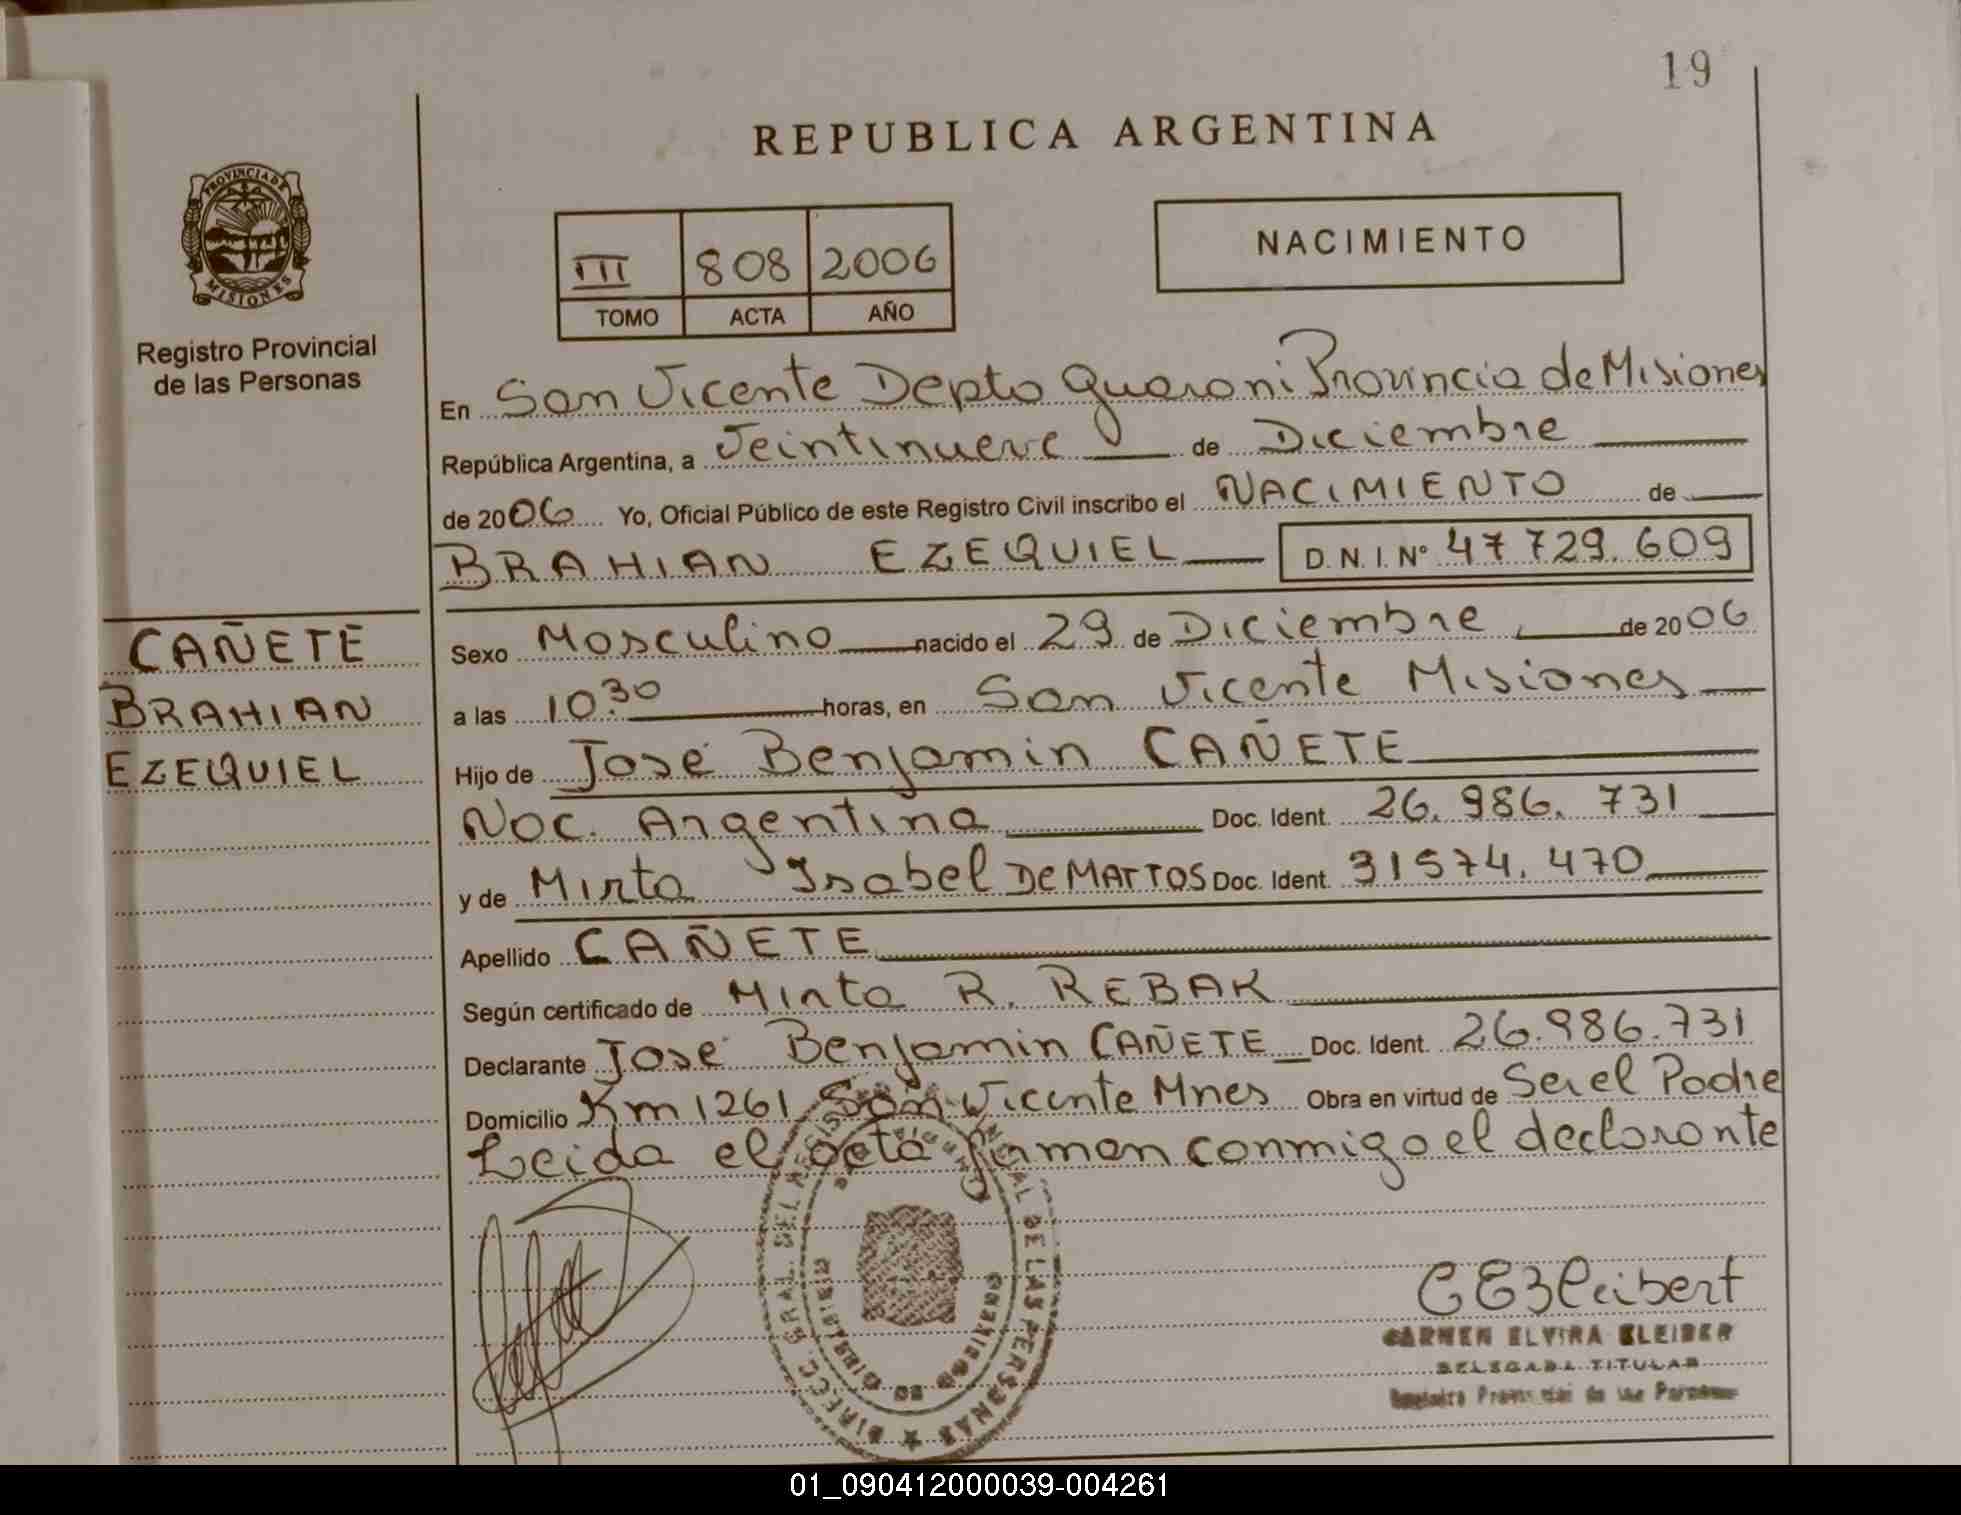 19
REPUBLICA ARGENTINA
PROVINCIA DE
MISIONES
Registro Provincial
de las Personas
III 808 2006
TOMO ACTA AÑO
NACIMIENTO
En San Vicente Depto Guarani Provincia de Misiones
República Argentina, a Veintinueve de Diciembre
de 2006 Yo, Oficial Público de este Registro Civil inscribo el NACIMIENTO de
BRAHIAN EZEQUIEL D.N.I. Nº 47 729.609
CAÑETE
BRAHIAN
EZEQUIEL
Sexo Masculino nacido el 29 de Diciembre de 2006
a las 10.30 horas, en San Vicente Misiones
Hijo de José Benjamin CAÑETE
Nac. Argentina Doc. Ident. 26.986.731
y de Mirta Isabel De MATTOS Doc. Ident. 31574.470
Apellido CAÑETE
Según certificado de Mirta R. REBAK
Declarante José Benjamin CAÑETE Doc. Ident. 26.986.731
Domicilio Km 1261 San Vicente Mnes Obra en virtud de Ser el Padre
Leida el acta firman conmigo el declarante
CARMEN ELVIRA KLEIBER
DELEGADA TITULAR
Registro Provincial de las Personas
01_090412000039-004261